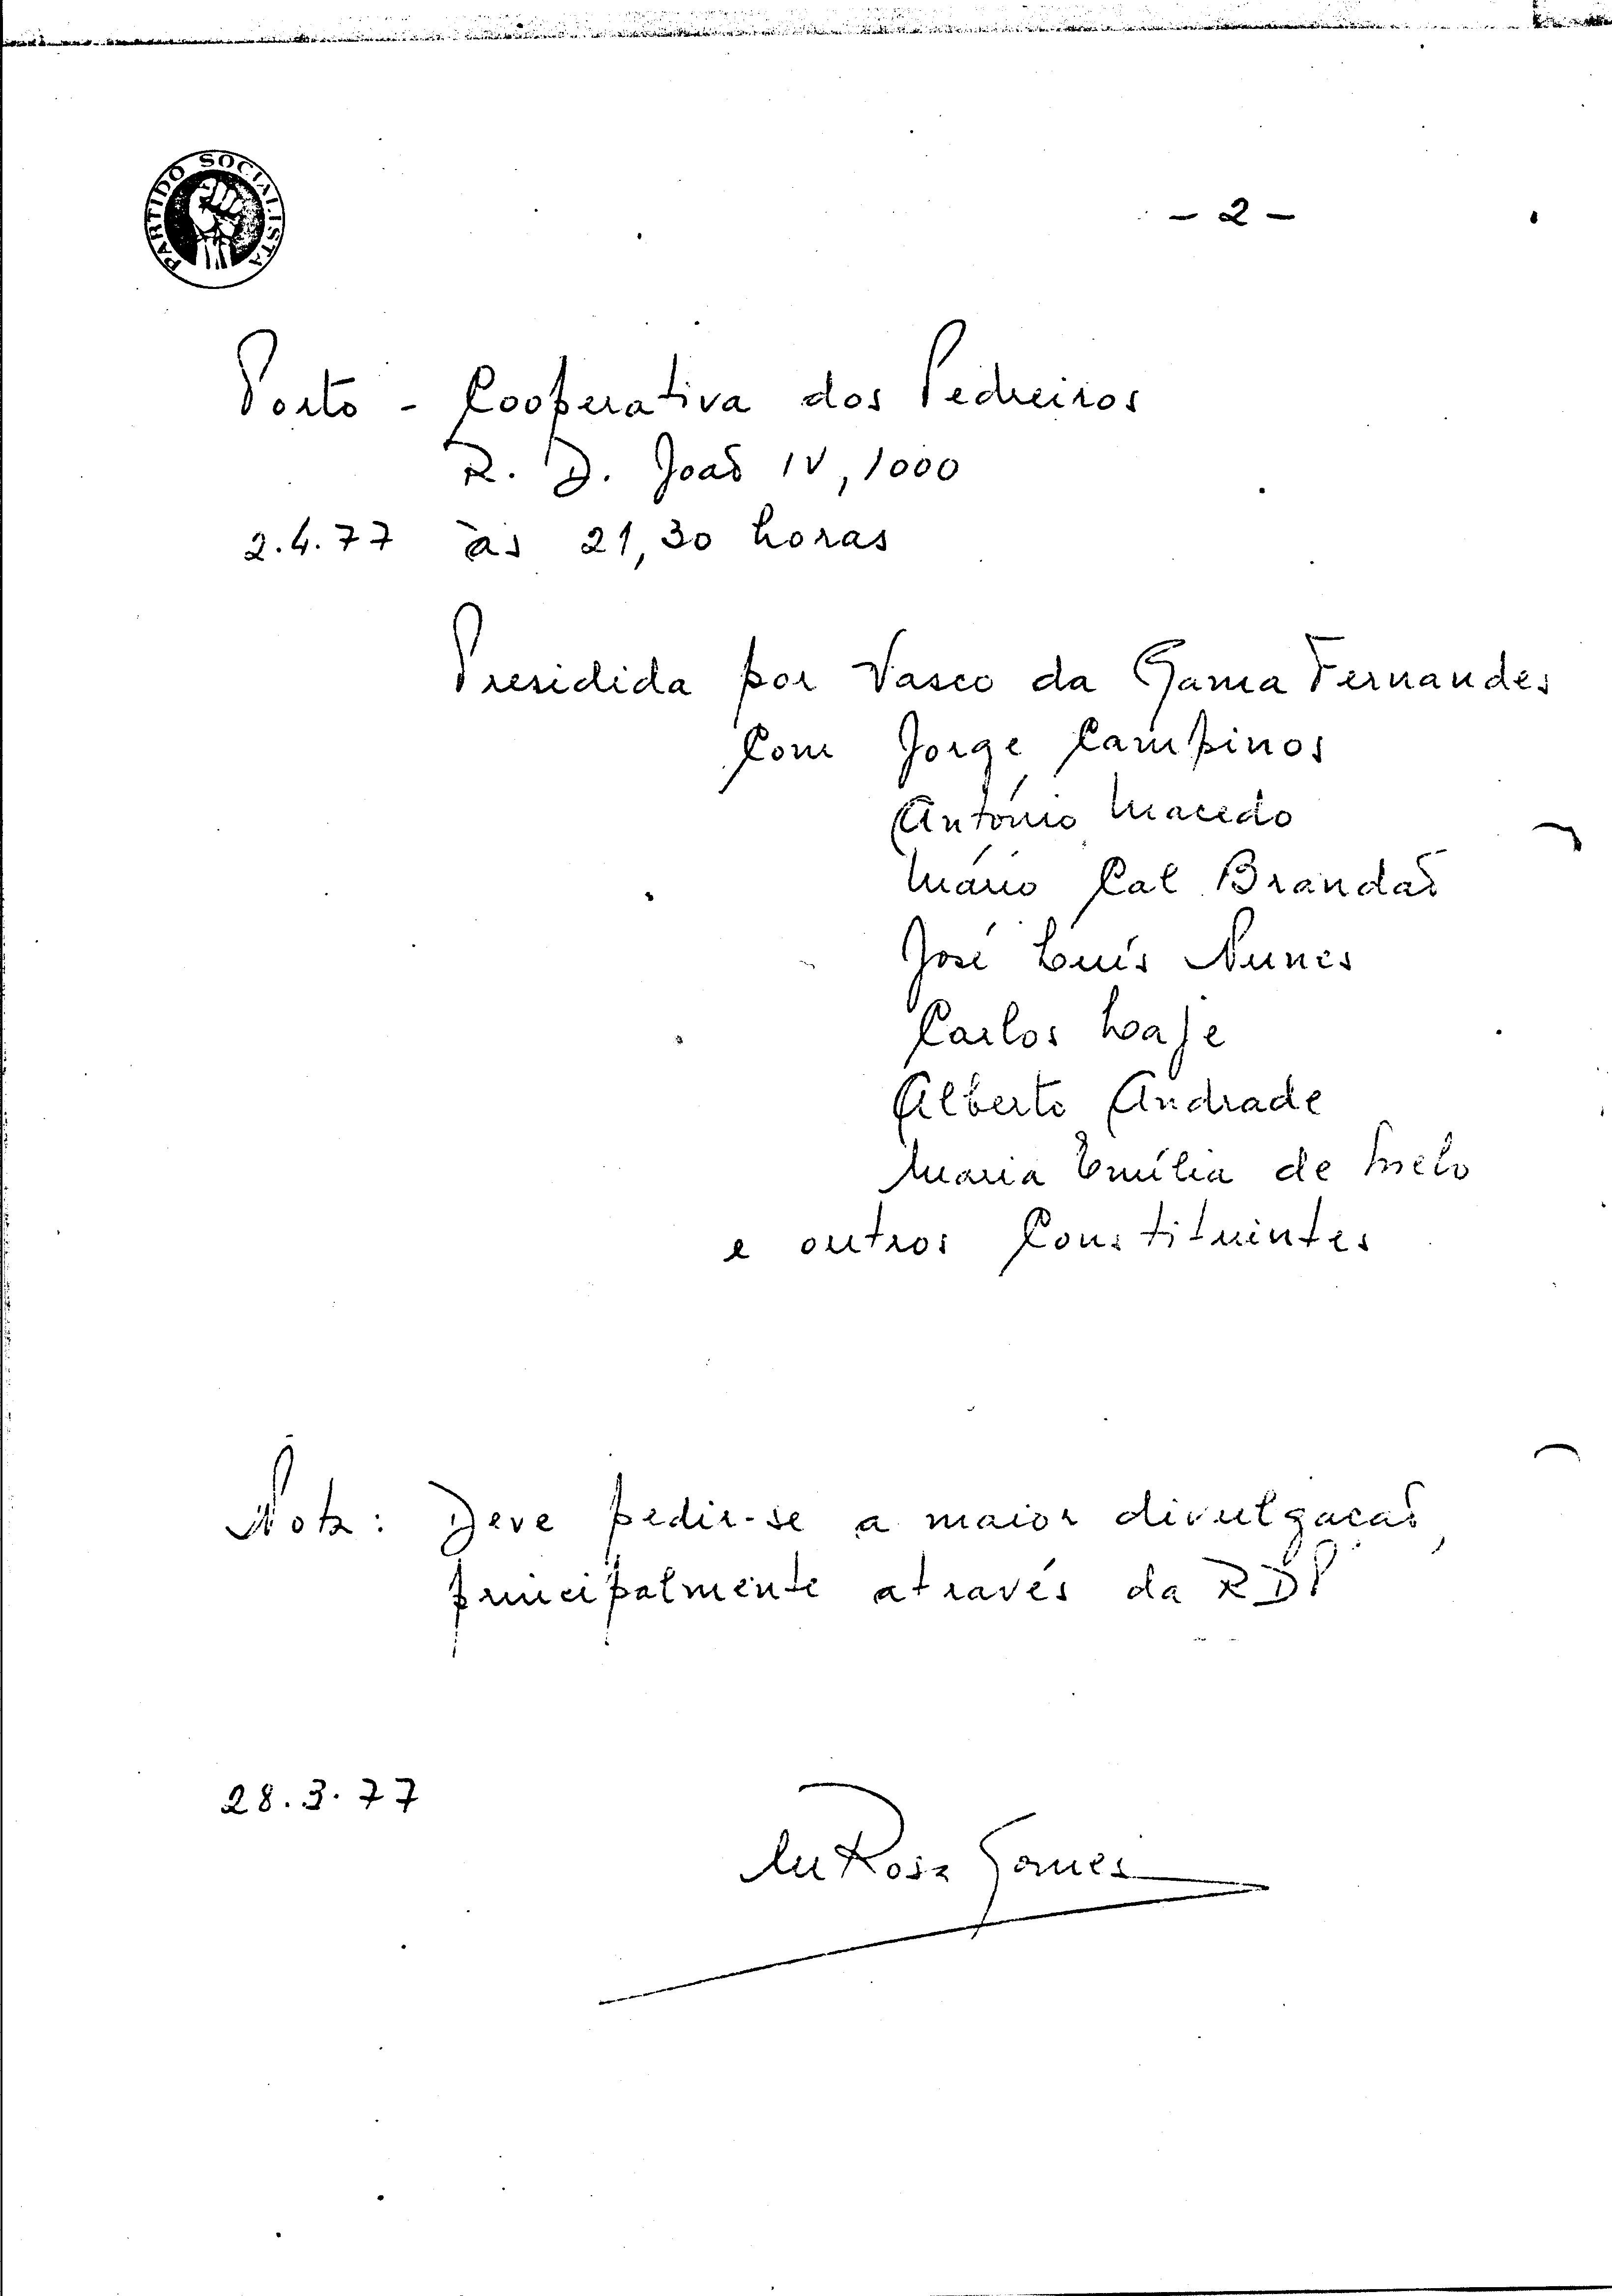 PARTIDO SOCIALISTA
- 2 -
Porto - Cooperativa dos Pedreiros
R. D. João IV, 1000
2.4.77 às 21,30 horas
Presidida por Vasco da Gama Fernandes
Com Jorge Campinos
António Macedo
Mário Cal Brandão
José Luís Nunes
Carlos Laje
Alberto Andrade
Maria Emília de Melo
e outros Constituintes
Nota: Deve pedir-se a maior divulgação,
principalmente através da RDP
28.3.77
Rosa Gomes